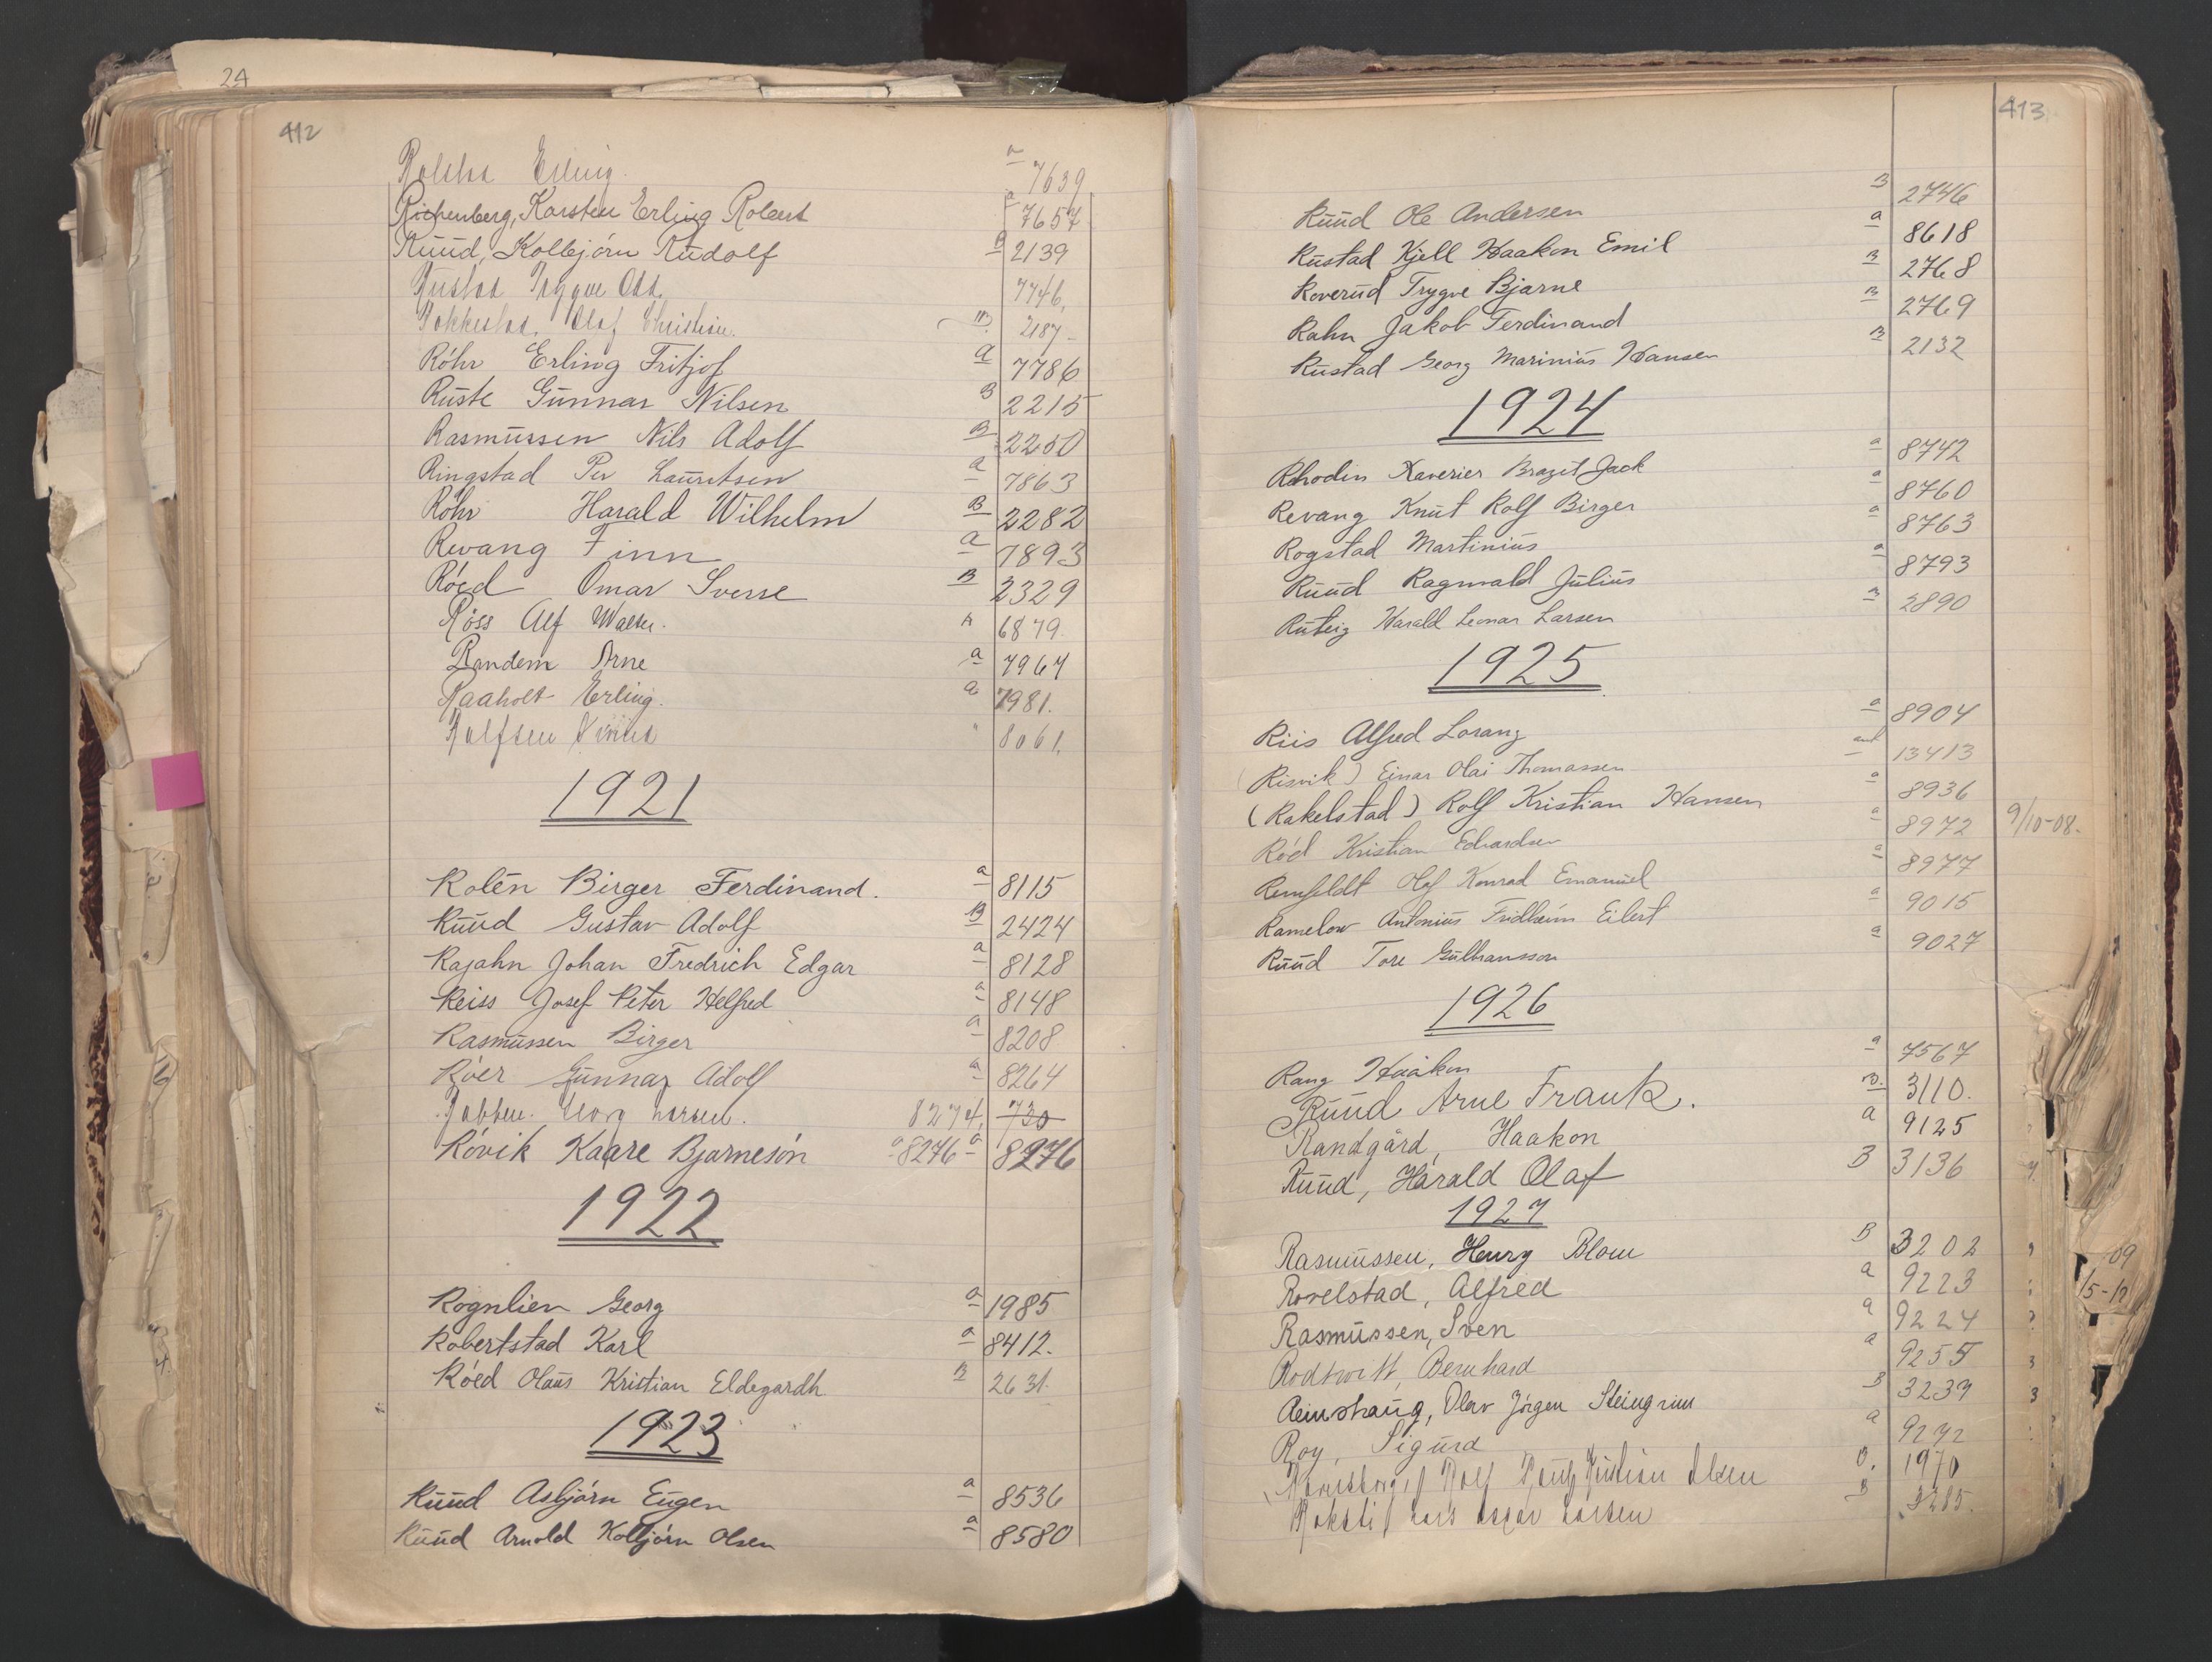 24
412
Erling a 7639
Richenberg, Karsten Erling Robert a 7657
Ruud, Kolbjørn Rudolf B 2139
Rustad Trygve Odd. 7746
Olaf Christian B 2187
Röhr Erling Fritjof a 7786
Ruste Gunnar Nilsen B 2215
Rasmussen Nils Adolf B 2250
Ringstad Per Lauritsen a 7863
Röhr Harald Wilhelm B 2282
Revang Finn a 7893
Röed Omar Sverre B 2329
Röss Alf Walter. A 6879.
Randem Arne a 7967
Raaholt Erling. a 7981.
Rolfsen " 8061.
1921
Rolén Birger Ferdinand. a 8115
Ruud Gustav Adolf B 2424
Rajahn Johan Fredrich Edgar a 8128
Reiss Josef Peter Helfred a 8148
Rasmussen Birger a 8208
Röer Gunnar Adolf a 8264
Georg Larsen. 8274, 730
Rövik Kaare Bjarnesön a 8276 a 8276
1922
Rognlien Georg a 1985
Robertstad Karl a 8412.
Röed Olaus Kristian Eldegardh B 2631.
1923
Ruud Asbjörn Eugen a 8536
Ruud Arnold Kolbjörn Olsen a 8580
413
Ruud Ole Andersen B 2746
Rustad Kjell Haakon Emil a 8618
Roverud Trygve Bjarne B 2768
Rahn Jakob Ferdinand B 2769
Rustad Georg Marinius Hansen B 2132
1924
Rhodin Xaverier Brazit Jack a 8742
Revang Knut Rolf Birger a 8760
Rogstad Martinius a 8763
Ruud Ragnvald Julius a 8793
Ruteig Harald Leonar Larsen B 2890
1925
Riis Alfred Lorang a 8904
(Risvik) Einar Olai Thomassen ant 13413
(Rakelstad) Rolf Kristian Hansen a 8936
Röd Kristian Edvardsen a 8972 9/10-08.
Remfeldt Olaf Konrad Emanuel a 8977
Ramelow Antonius Fridheim Eilert a 9015
Ruud Tore Gulbransson a 9027
1926
Rang Haakon a 7567
Ruud Arne Frank. B. 3110.
Randgård, Haakon a 9125
Ruud, Harald Olaf B 3136
1927
Rasmussen, Henry Blom B 3202
Rovelstad, Alfred a 9223
Rasmussen, Sven a 9224
Rodtwitt, Bernhard a 9255
Reinshaug, Olav Jörgen Steingrim B 3239
Roy, Sigurd a 9292
Rolf Kristian Olsen B. 1970
Lars Oscar Larsen B 3285.
09
15-12